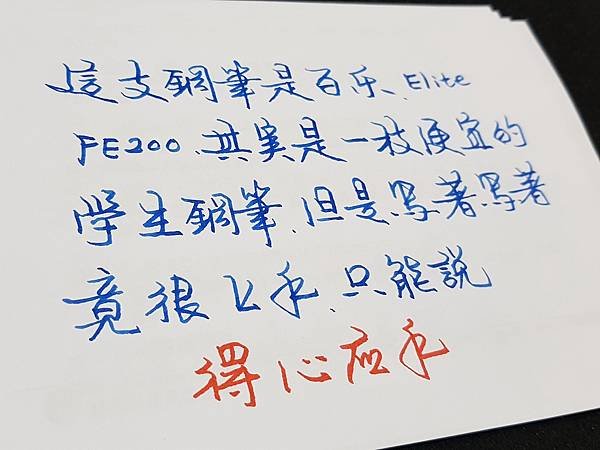 這支鋼筆是百乐、Elite
FE200、其実是一枝便宜的
学生鋼筆、但是写著写著
竟很上手、只能說
得心应手